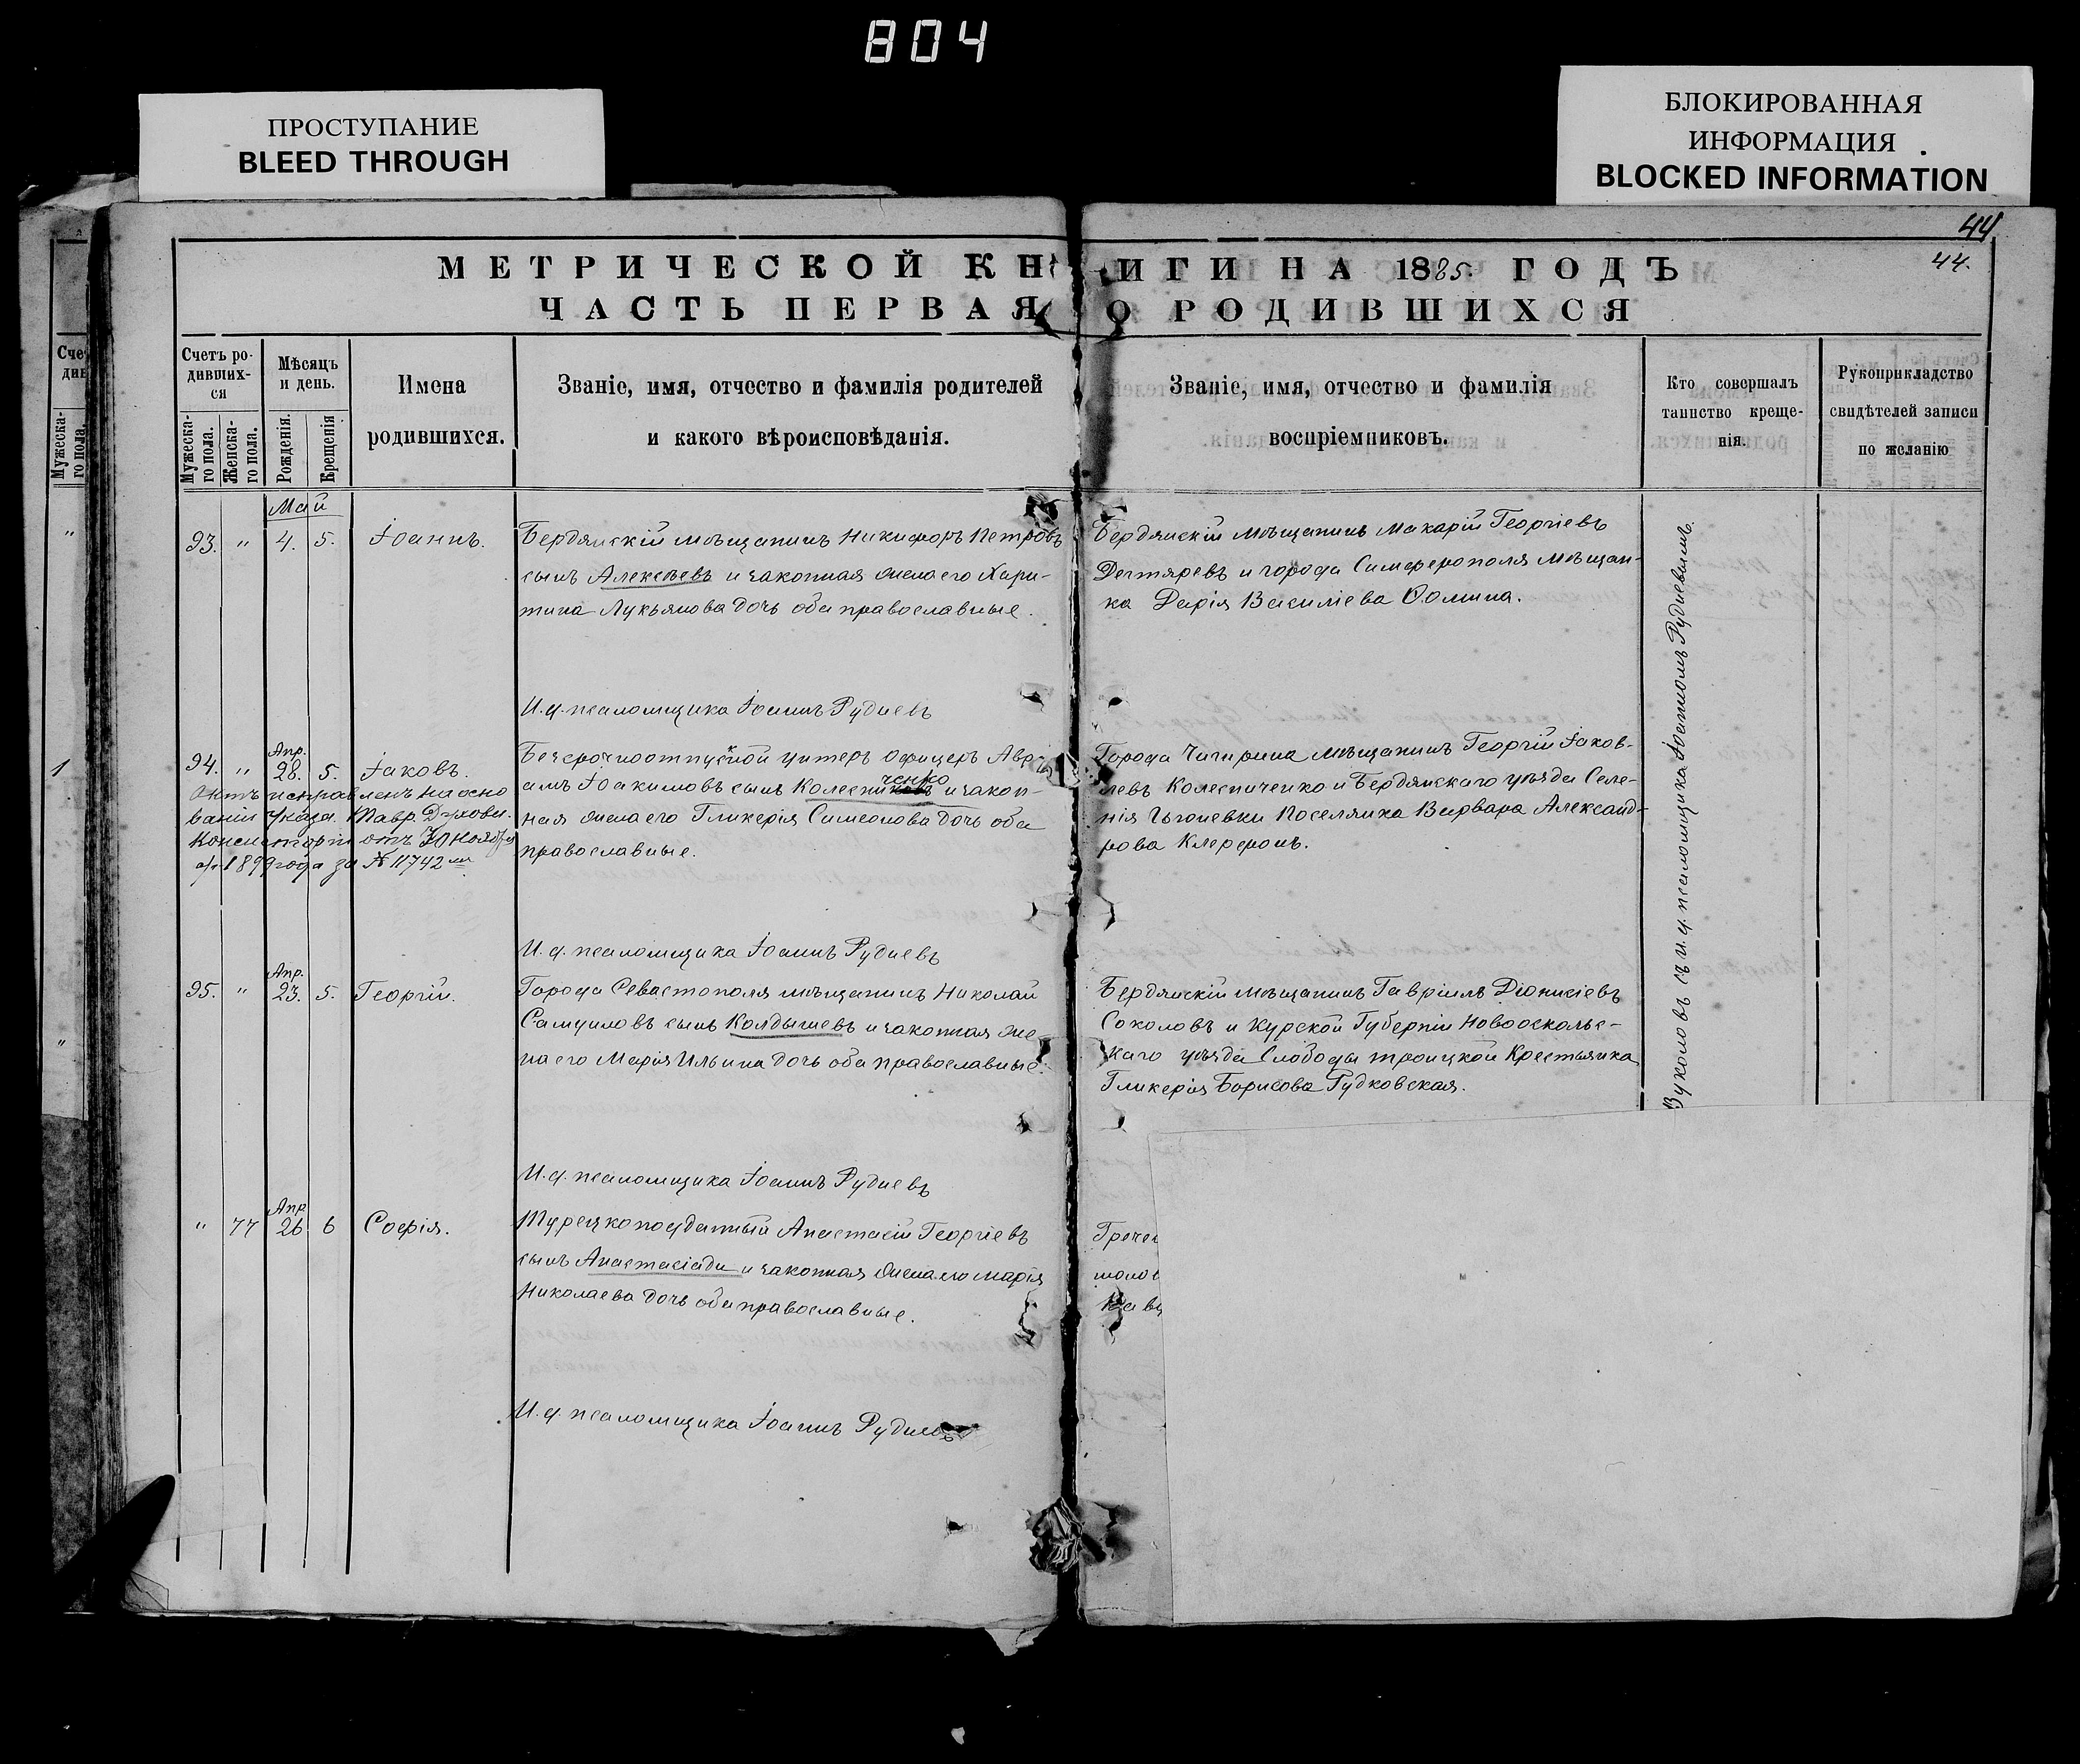 804
ПРОСТУПАНИЕ
BLEED THROUGH
БЛОКИРОВАННАЯ
ИНФОРМАЦИЯ
BLOCKED INFORMATION
44
44.
МЕТРИЧЕСКОЙ КНИГИ НА 1885 ГОДЪ
ЧАСТЬ ПЕРВАЯ О РОДИВШИХСЯ
Счетъ ро-
дивших-
ся
Мужеска-
го пола.
Женска-
го пола.
Мѣсяцъ
и день.
Рожденія.
Крещенія
Имена
родившихся.
Званіе, имя, отчество и фамилія родителей
и какого вѣроисповѣданія.
Званіе, имя, отчество и фамилія
воспріемниковъ.
Кто совершалъ
таинство креще-
нія.
Рукоприкладство
свидѣтелей записи
по желанію
Май
93. " 4. 5. Іоаннъ.
Бердянскій мѣщанинъ Никифоръ Петровъ
сынъ Алексѣевъ и законная жена его Хари-
тина Лукьянова дочь оба православные.
Бердянскій мѣщанинъ Макарій Георгіевъ
Дегтяревъ и города Симферополя мѣщан-
ка Дарія Василіева Ѳомина.
И. д. псаломщика Іоаннъ Рудневъ
Апр.
94. " 28. 5. Іаковъ.
Актъ исправленъ на осно
ваніи указа Тавр. Духовн.
Консисторіи отъ 30 Ноября
1899 года за № 11742
Безсрочноотпускной унтеръ офицеръ Авра
амъ Іоакимовъ сынъ Колесниченко и закон-
ная жена его Гликерія Симеонова дочь оба
православные.
Города Чигирина мѣщанинъ Георгій Іаков-
левъ Колесниченко и Бердянскаго уѣзда Селе-
нія Поселянка Варвара Александ-
рова
И. д. псаломщика Іоаннъ Рудневъ
Апр.
95. " 23. 5. Георгій.
Города Севастополя мѣщанинъ Николай
Самуиловъ сынъ Колдышевъ и законная же-
на его Марія Ильина дочь оба православные.
Бердянскій мѣщанинъ Гавріилъ Діонисіевъ
Соколовъ и Курской Губерніи Новоосколь-
скаго уѣзда Слободы Троицкой Крестьянка
Гликерія Борисова Гудковская.
И. д. псаломщика Іоаннъ Рудневъ
Апр
" 77 26 6 Софія.
Турецкоподданный Анастасій Георгіевъ
сынъ Анастасіади и законная жена его Марія
Николаева дочь оба православные.
И. д. псаломщика Іоаннъ Рудневъ
съ и. д. псаломщика Іоанномъ Рудневымъ.